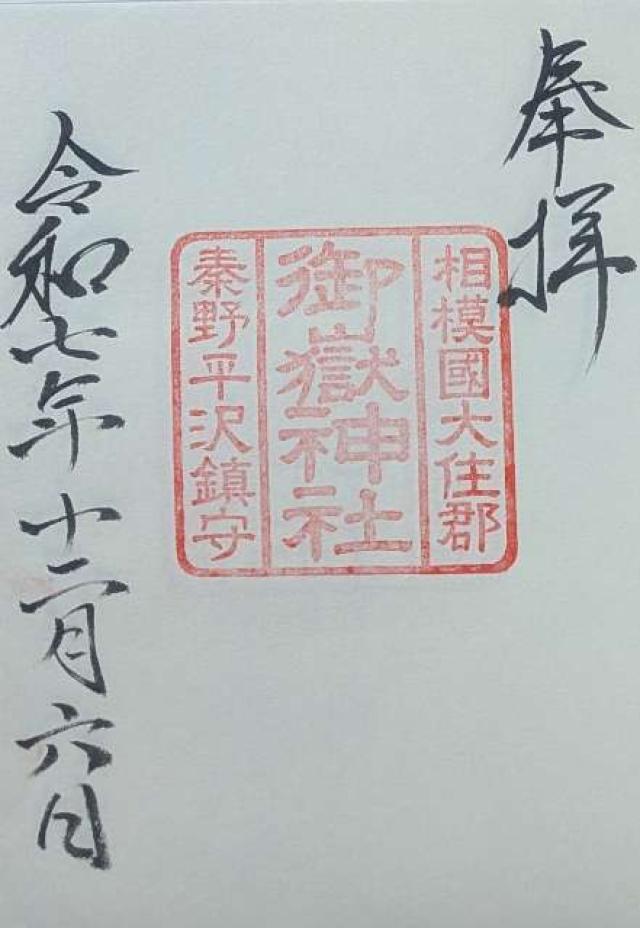 奉拝
相模國大住郡
御嶽神社
秦野平沢鎮守
令和七年十二月六日